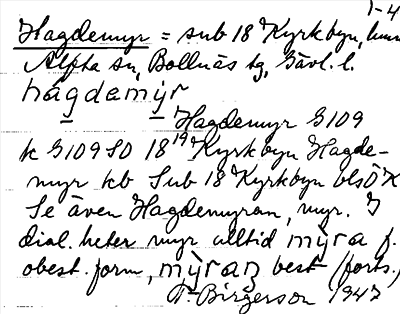 1-4
Hagdemyr = sub 18 Kyrkbyn,
Alfta sn, Bollnäs tg, Gävl. l.
hágdamýr
Hagdemyr G109
k G109 SO 18¹⁹ Kyrkbyn Hagde-
myr kb Sub 18 Kyrkbyn blsÖK
Se även Hagdemyran, myr. I
dial. heter myr alltid mỳra f.
obest. form, mỳraṇ best (forts.)
P. Birgerson 1947